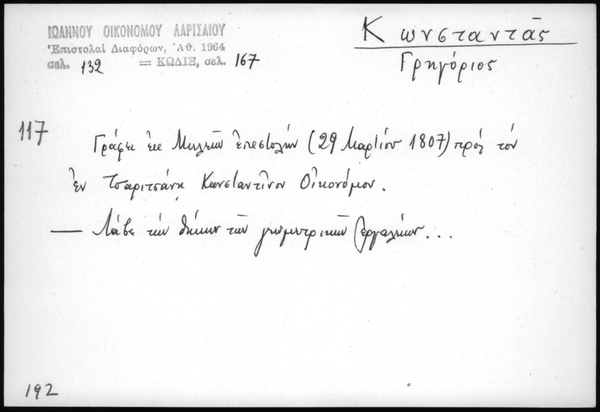 ΙΩΑΝΝΟΥ ΟΙΚΟΝΟΜΟΥ ΛΑΡΙΣΑΙΟΥ
Ἐπιστολαὶ Διαφόρων, Ἀθ. 1964
σελ. 132 = ΚΩΔΙΞ, σελ. 167
Κωνσταντᾶς
Γρηγόριος
117
Γράφει ἐκ Μηλεῶν ἐπιστολήν (29 Μαρτίου 1807) πρὸς τὸν
ἐν Τσαριτσάνῃ Κωνσταντῖνον Οἰκονόμον.
— Λάβε τὴν θήκην τῶν γεωμετρικῶν ἐργαλείων...
192